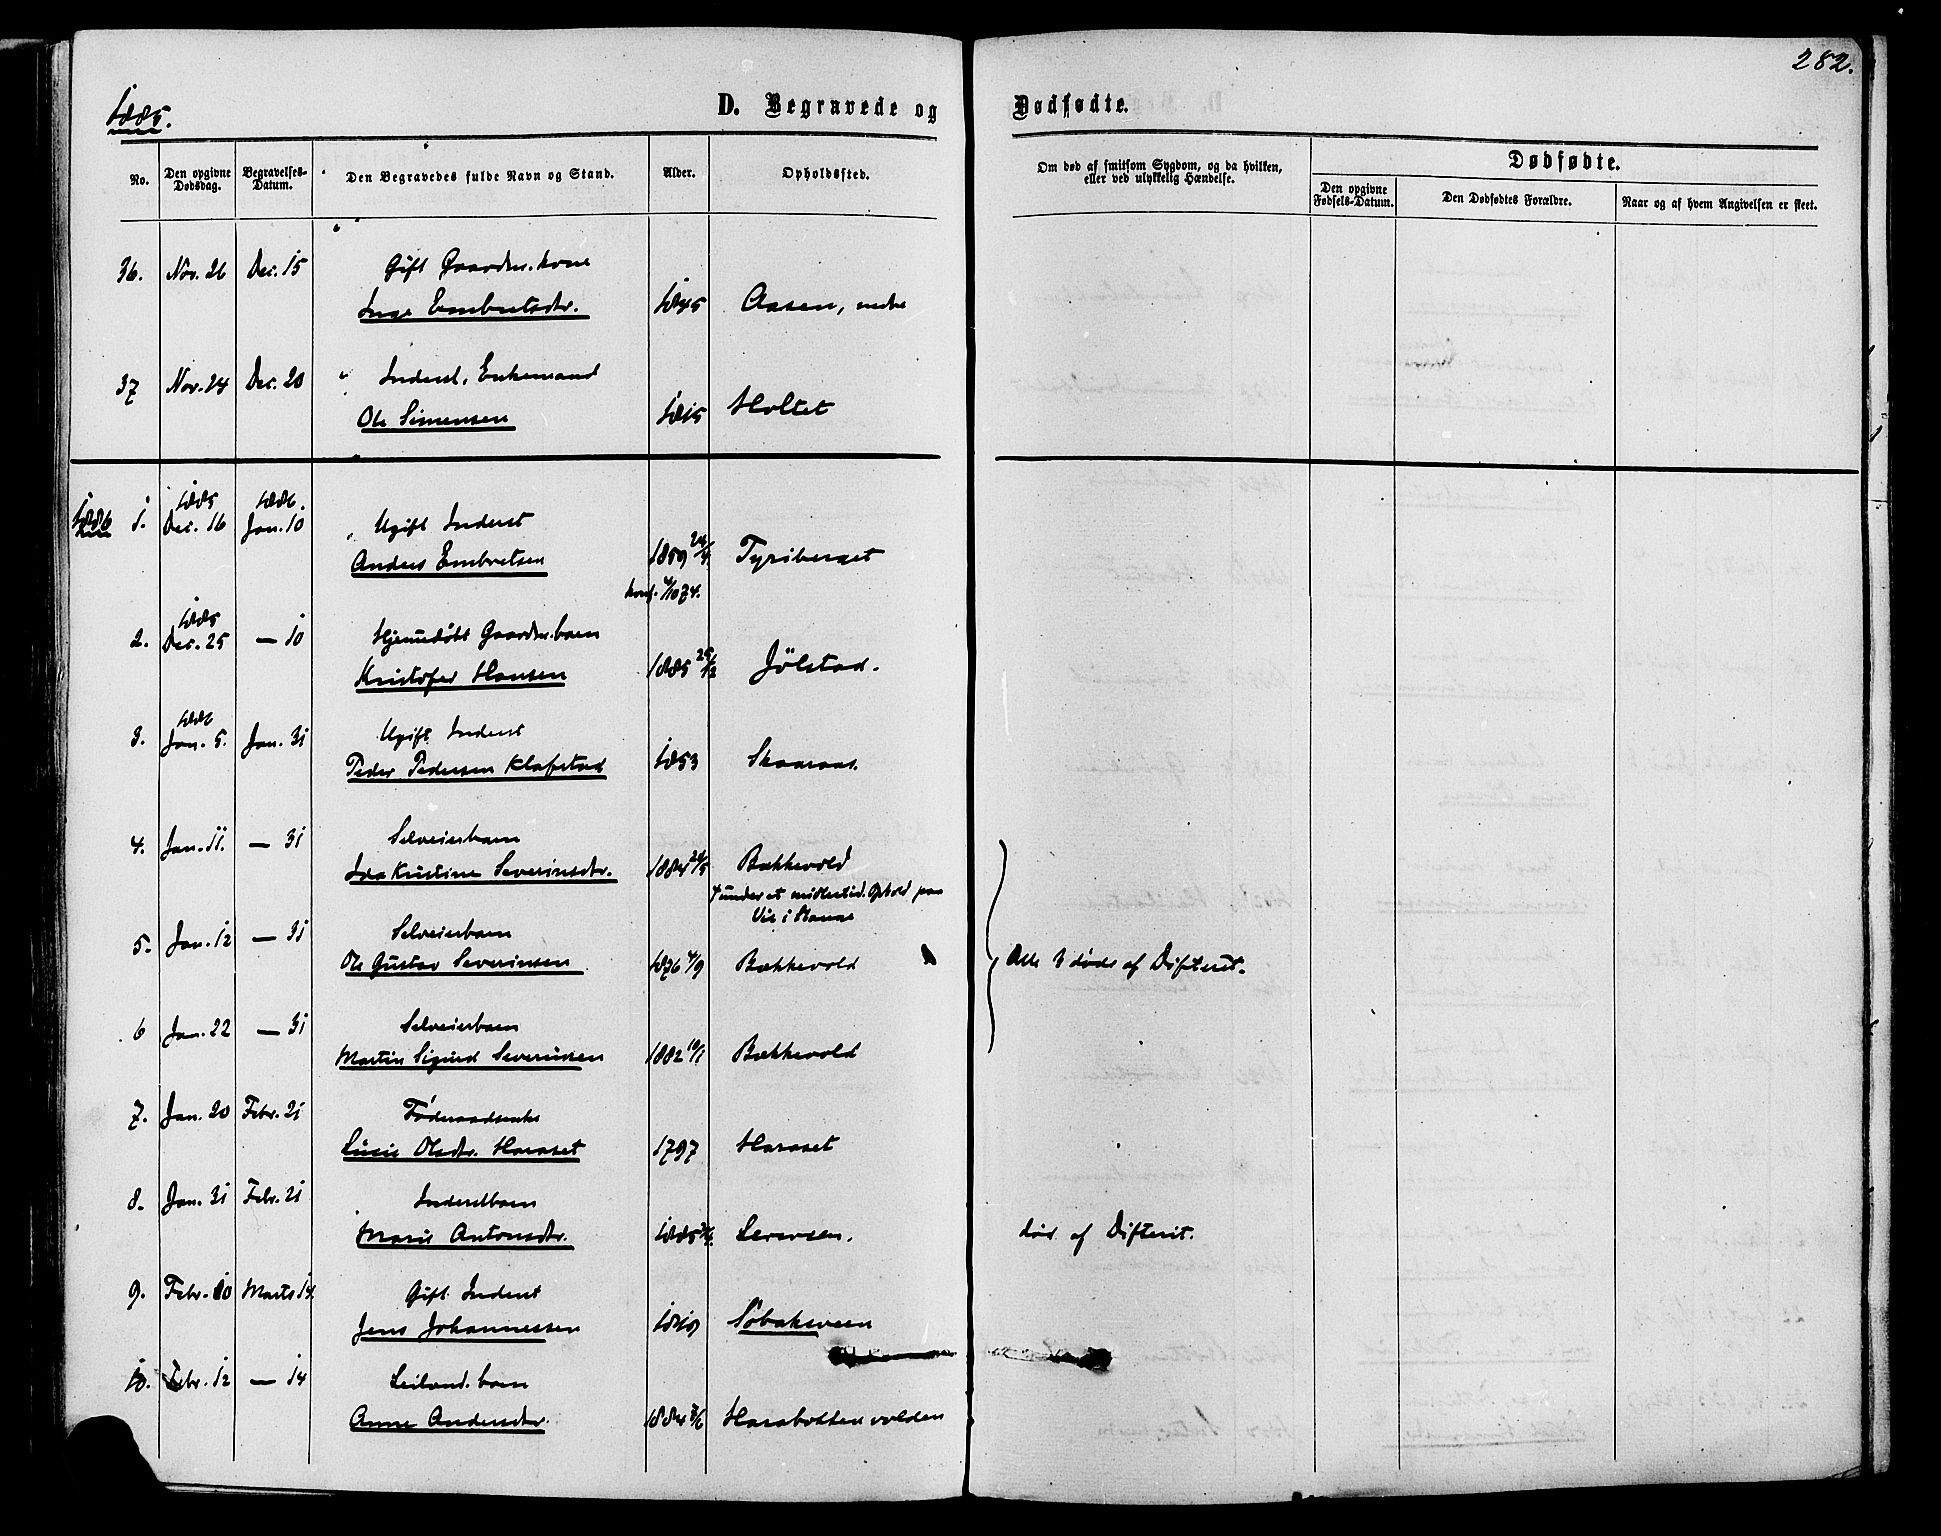 282.
1885.
D. Begravede og Dødfødte.
No.
Den opgivne Dødsdag.
Begravelses-Datum.
Den Begravedes fulde Navn og Stand.
Alder.
Opholdssted.
Om død af smitsom Sygdom, og da hvilken, eller ved ulykkelig Hændelse.
Dødfødte.
Den opgivne Fødsels-Datum.
Den Dødfødtes Forældre.
Naar og af hvem Angivelsen er skeet.
36. Nov. 26 Dec. 15 Gift Gaardm. kone
Inge Embretsdtr. 1845 Aasen, nedre
37 Nov. 24 Dec. 20 Inderst, Enkemand
Ole Simensen 1815 Holtet
1886 1. 1885 Dec. 16 1886. Jan. 10 Ugift Inderst
Anders Embretsen 1859 24/4. Tyriberget
konf. 4/10 74.
2. 1885 Dec. 25 — 10 Hjemmedøbt Gaardm. barn
Kristofer Hansen 1885 25/12 Jölstad.
3. 1886 Jan. 5. Jan. 31 Ugift Inderst
Peder Pedersen Klofstad 1853 Skaaraas.
4. Jan. 11. — 31 Selveierbarn
Ida Kristine Severinsdtr. 1884 28/5 Bækkevold
† under et midlertid. Ophold paa
5. Jan. 12 — 31 Selveierbarn
Ole Gustav Severinsen 1876 4/9 Bækkevold
Alle 3 døde af Difterit.
6 Jan. 22 — 31 Selveierbarn
Martin Sigurd Severinsen 1882 10/1 Bækkevold
7. Jan. 20 Febr. 21 Føderaadsenke
Lisie Olsdtr. Haraset 1797 Haraset
8. Jan. 31 Febr. 21 Inderstbarn
Marie Antonsdtr. 1885 Lerersen.
død af Difterit.
9. Febr. 10 Marts 14. Gift Inderst
Jens Johannessen 1819 Söbakveen
10. Febr. 12 — 14 Leilænd. barn
Anne Andersdtr. 1884 Harabotten volden